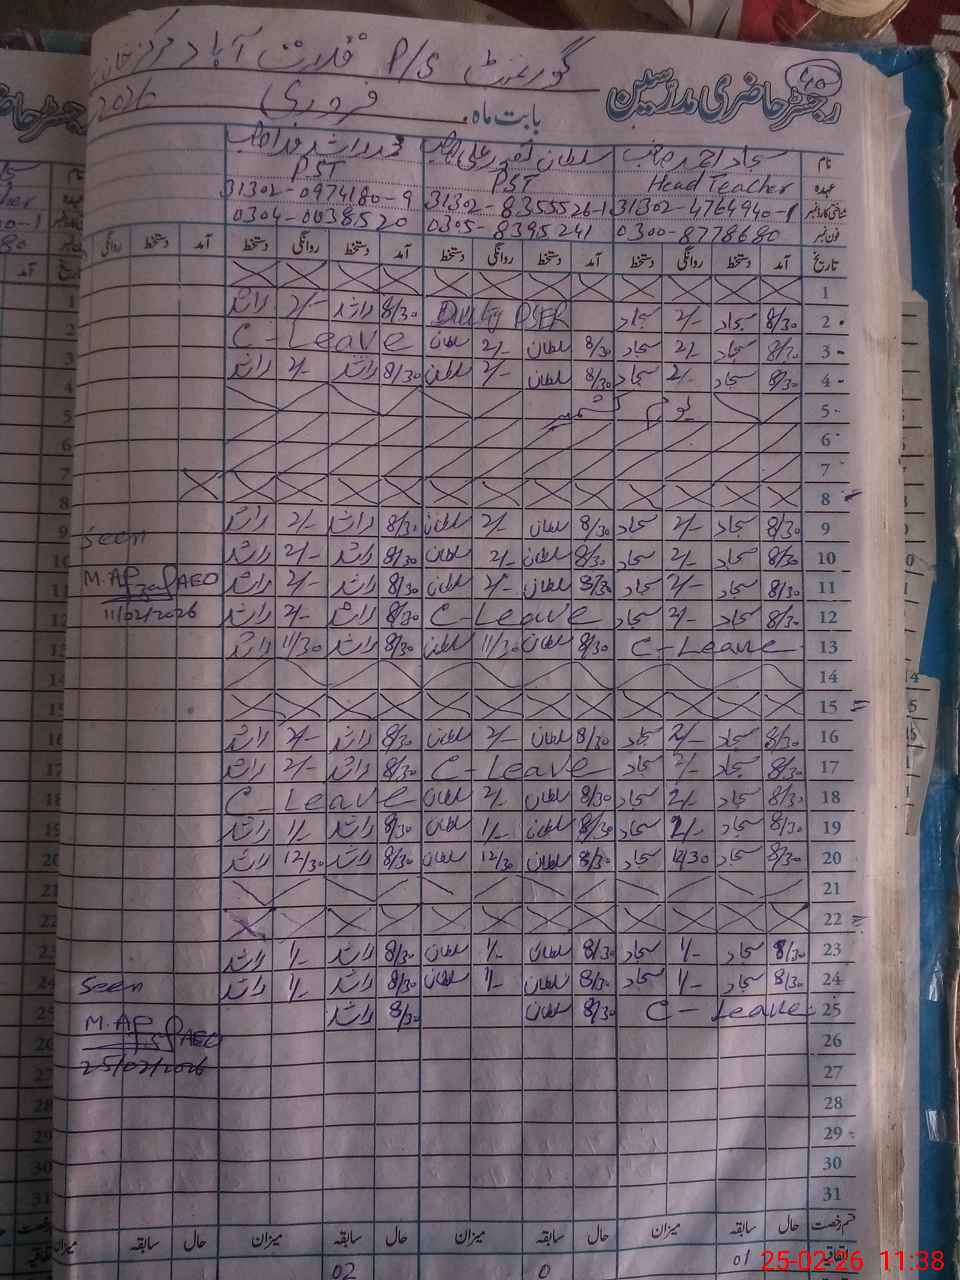 رجسٹر حاضری مدرسین
گورنمنٹ P/S آباد مرکز
بابت ماہ فروری 2026
نام سجاد احمد صاحب سلطان
عہدہ Head Teacher PST PST
31302-4764940-1 31302-8355526-1 31302-0974180-9
فون نمبر 0300-8778680 0305-8395241 0304-0038520
تاریخ آمد دستخط روانگی دستخط آمد دستخط روانگی دستخط آمد دستخط روانگی دستخط آمد دستخط روانگی
1
2 8/30 سجاد 2/- سجاد Duty PSER 8/30 راشد 2/- راشد
3 8/30 سجاد 2/- سجاد 8/30 سلطان 2/- سلطان C-Leave
4 8/30 سجاد 2/- سجاد 8/30 سلطان 2/- سلطان 8/30 راشد 2/- راشد
5 یوم کشمیر
6
7
8
9 8/30 سجاد 2/- سجاد 8/30 سلطان 2/- سلطان 8/30 راشد 2/- راشد Seen
10 8/30 سجاد 2/- سجاد 8/30 سلطان 2/- سلطان 8/30 راشد 2/- راشد
11 8/30 سجاد 2/- سجاد 8/30 سلطان 2/- سلطان 8/30 راشد 2/- راشد M. Afzal AEO
12 8/30 سجاد 2/- سجاد C-Leave 8/30 راشد 2/- راشد 11/02/2026
13 C-Leave 8/30 سلطان 11/30 سلطان 8/30 راشد 11/30 راشد
14
15
16 8/30 سجاد 2/- سجاد 8/30 سلطان 2/- سلطان 8/30 راشد 2/- راشد
17 8/30 سجاد 2/- سجاد C-Leave 8/30 راشد 2/- راشد
18 8/30 سجاد 2/- سجاد 8/30 سلطان 2/- سلطان C-Leave
19 8/30 سجاد سجاد 8/30 سلطان 1/- سلطان 8/30 راشد 1/- راشد
20 8/30 سجاد 12/30 سجاد 8/30 سلطان 12/30 سلطان 8/30 راشد 12/30 راشد
21
22
23 8/30 سجاد 1/- سجاد 8/30 سلطان 1/- سلطان 8/30 راشد 1/- راشد
24 8/30 سجاد 1/- سجاد 8/30 سلطان 1/- سلطان 8/30 راشد 1/- راشد Seen
25 C-Leave 8/30 سلطان 8/30 راشد M. Afzal AEO
26 25/02/2026
27
28
29
30
31
قسم رخصت حال سابقہ میزان حال سابقہ میزان حال سابقہ میزان حال سابقہ میزان
اتفاقیہ 01 0 02
25-02-26 11:38